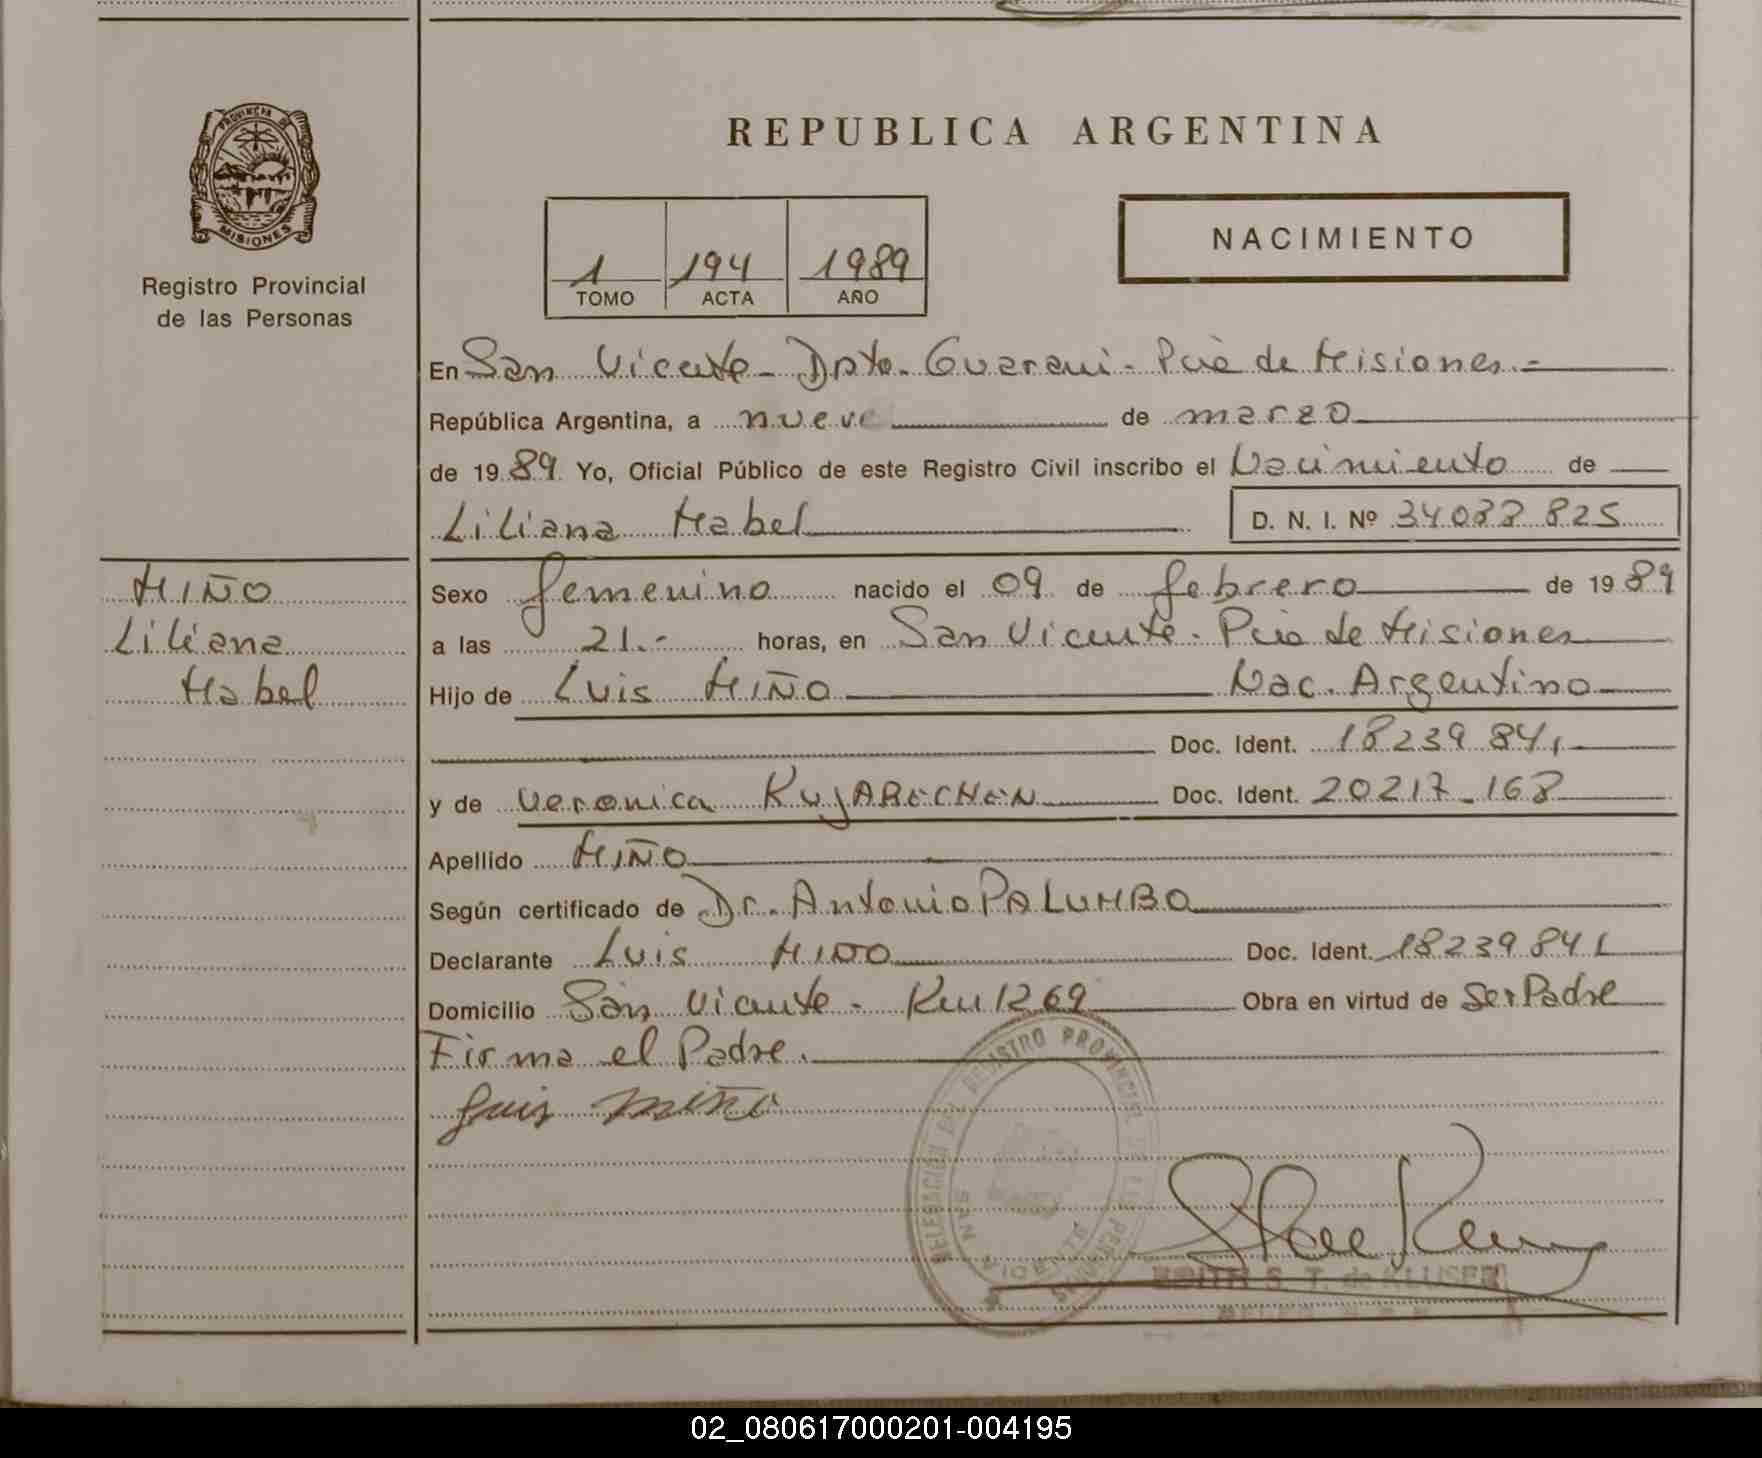 REPUBLICA ARGENTINA
PROVINCIA DE
MISIONES
Registro Provincial
de las Personas
1 194 1989
TOMO ACTA AÑO
NACIMIENTO
En San Vicente - Dpto. Guarani - Pcia de Misiones.-
República Argentina, a nueve de marzo
de 1989 Yo, Oficial Público de este Registro Civil inscribo el Nacimiento de
Liliana Mabel D. N. I. Nº 34088825
MIÑO
Liliana
Mabel
Sexo femenino nacido el 09 de febrero de 1989
a las 21.- horas, en San Vicente - Pcia de Misiones
Hijo de Luis MIÑO Nac. Argentino
Doc. Ident. 18239841
y de Veronica KUJARECHEN Doc. Ident. 20217-168
Apellido MIÑO
Según certificado de Dr. Antonio PALUMBO
Declarante Luis MIÑO Doc. Ident. 18239841
Domicilio San Vicente - Km 1269 Obra en virtud de Ser Padre
Firma el Padre.
Luis Miño
DELEGACIÓN DEL REGISTRO PROVINCIAL DE LAS PERSONAS
SAN VICENTE
EDITH S. T. de KLUSER
02_080617000201-004195